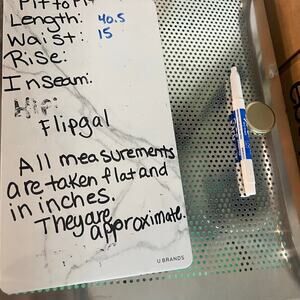 Pit to Pit
Length: 40.5
Waist: 15
Rise:
Inseam:
Hip:
Flipgal
All measurements
are taken flat and
in inches.
They are approximate.
U BRANDS